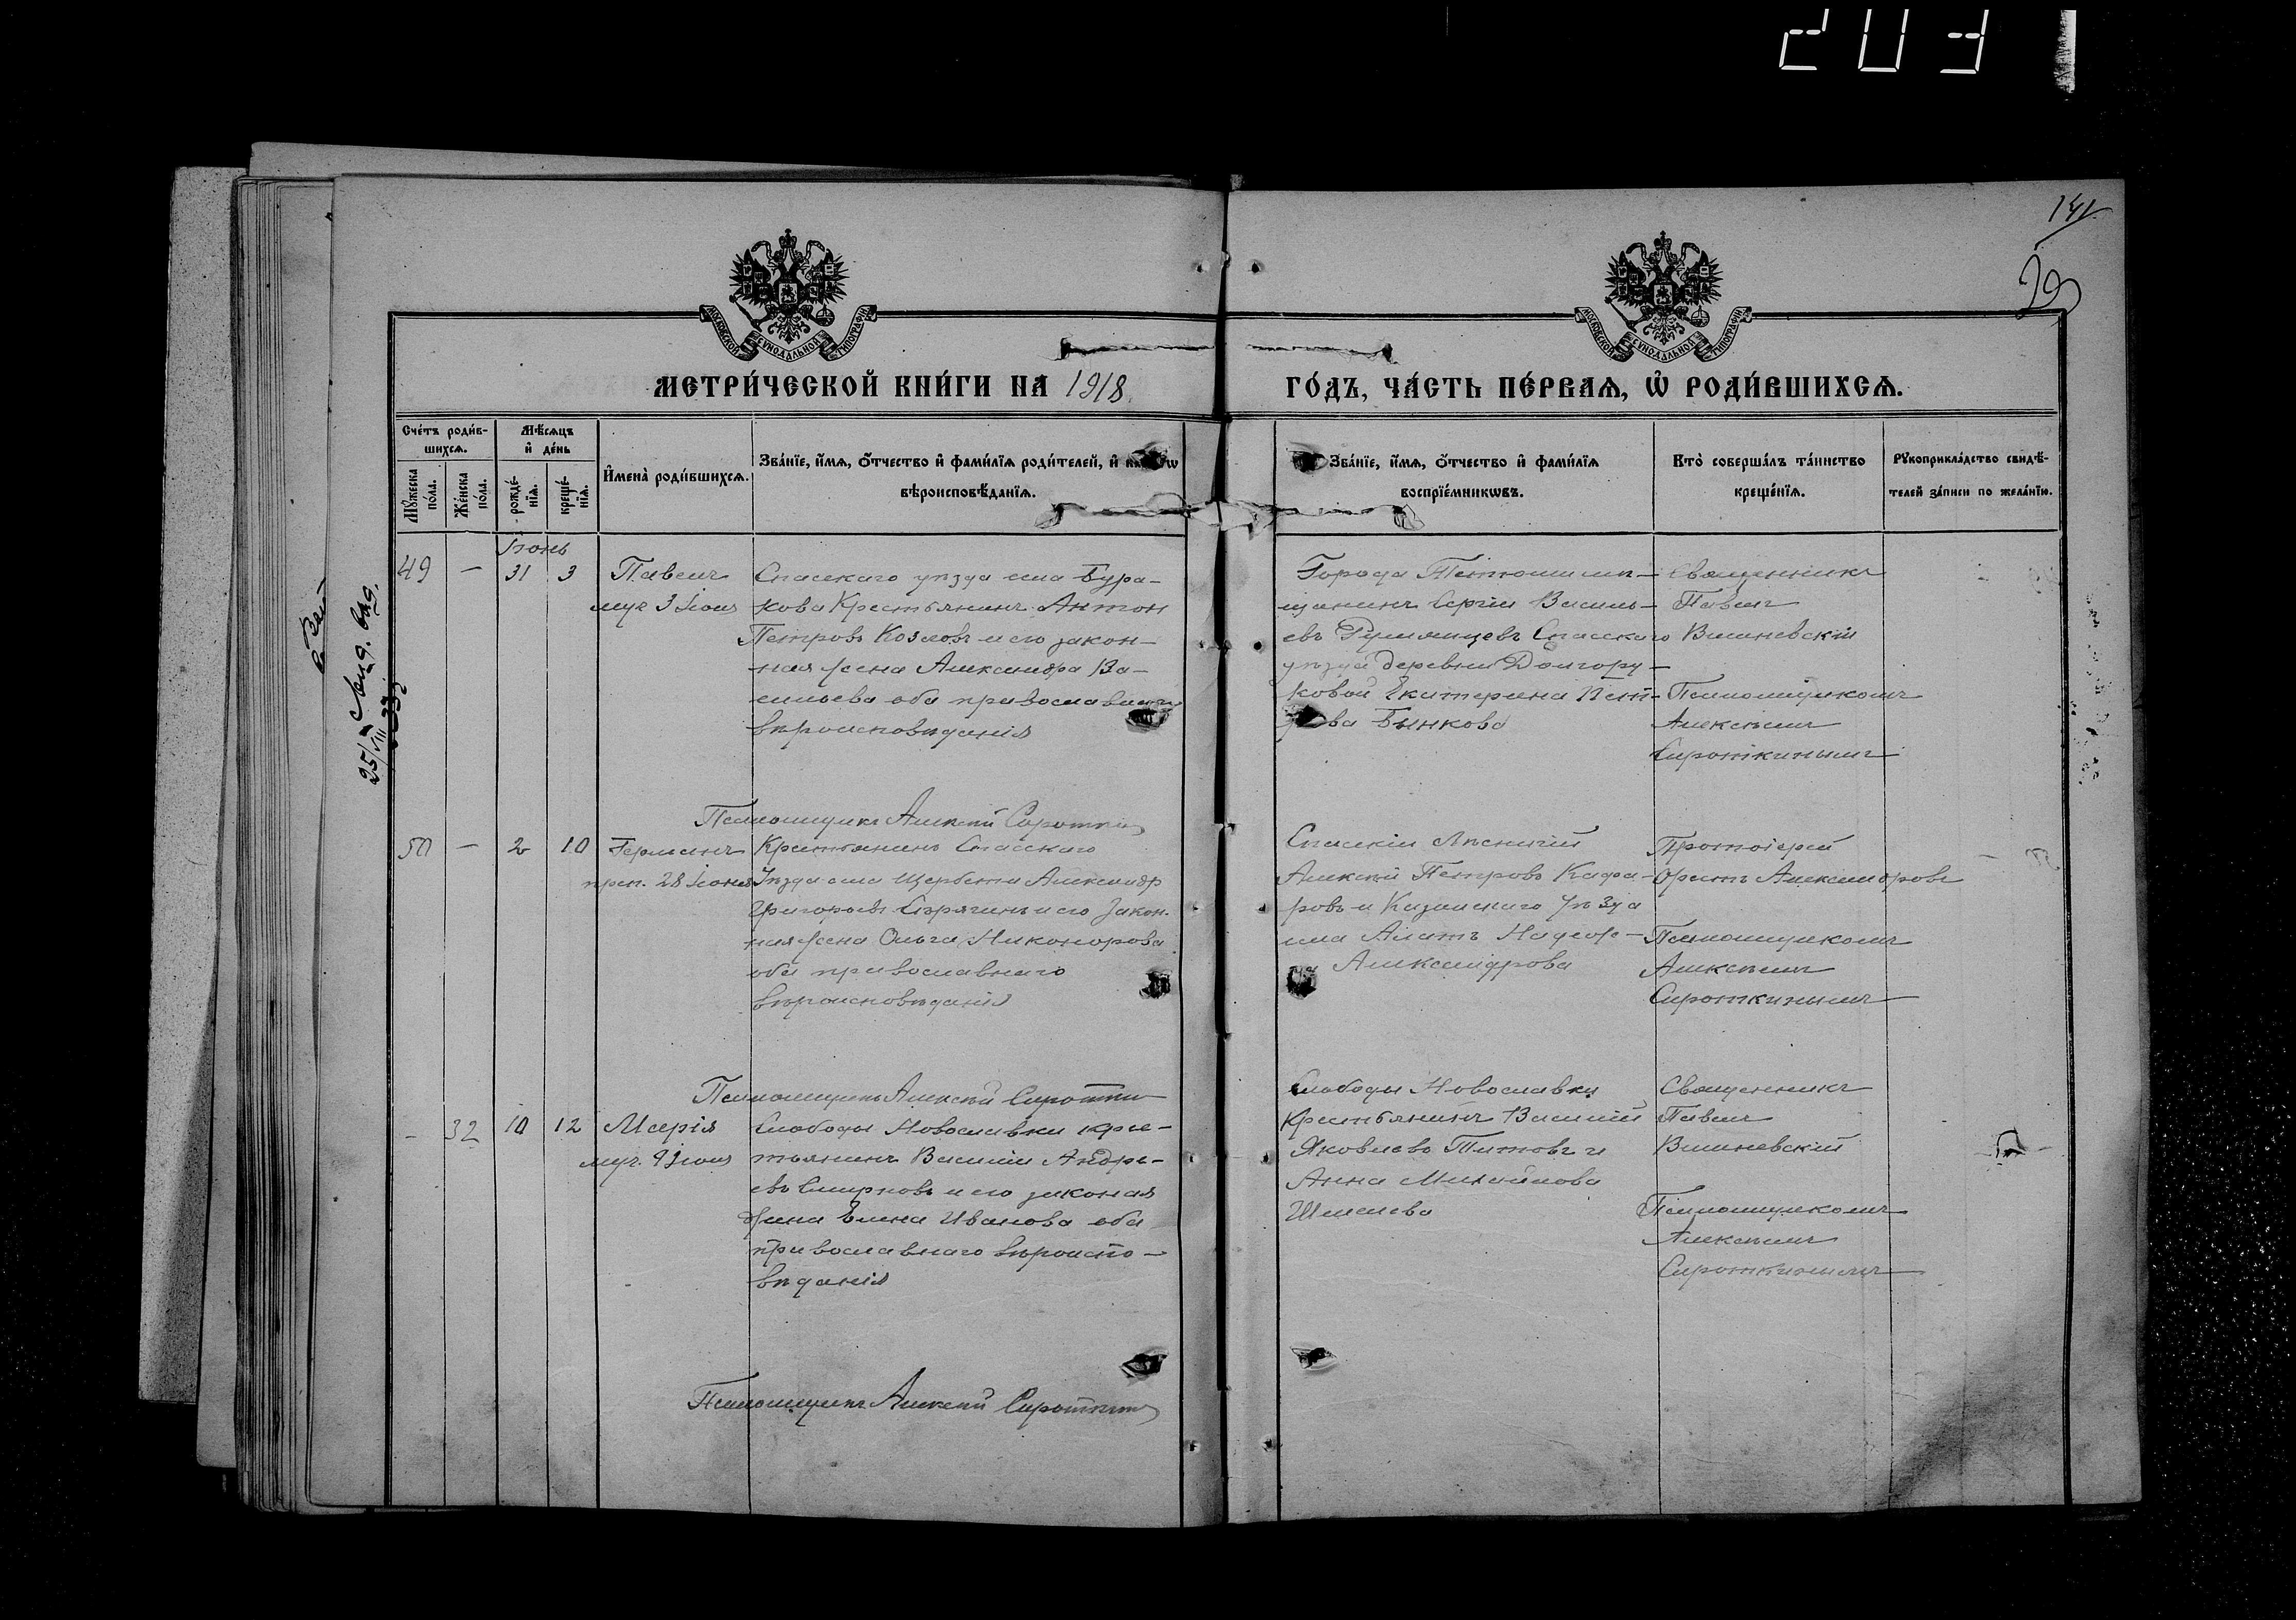 203
141
МОСКОВСКОЙ СѴНОДАЛЬНОЙ ТИПОГРАФІИ
МОСКОВСКОЙ СѴНОДАЛЬНОЙ ТИПОГРАФІИ
МЕТРИ́ЧЕСКОЙ КНИ́ГИ НА 1918 ГО́ДЪ, ЧА́СТЬ ПЕ́РВАЯ, Ѡ҆ РОДИ́ВШИХСЯ.
Сче́тъ роди́в-
шихся.
Мꙋ́жеска по́ла.
Же́нска по́ла.
Мѣ́сяцъ
и҆ де́нь
рожде́-
нїя.
креще́-
нїя.
И҆мена̀ роди́вшихся.
Зва́нїе, и҆́мя, ѻ҆́тчество и҆ фами́лїя роди́телей, и҆
вѣроисповѣ́данїя.
Зва́нїе, и҆́мя, ѻ҆́тчество и҆ фами́лїя
воспрїе́мникѡвъ.
Кто̀ соверша́лъ та́инство
креще́нїя.
Рꙋкоприкла́дство свидѣ́-
телей за́писи по жела́нїю.
Іюнь
49 — 31 3
Павелъ
муч 3 Іюня
Спасскаго уѣзда села Бура-
кова Крестьянинъ Антон
Петровъ Козловъ и его закон-
ная жена Александра Ва-
сильева оба православнаго
вѣроисповѣданія
Города Тетюши мѣ-
щанинъ Сергѣй Василь-
евъ Румянцевъ Спасскаго
уѣзда деревни Долгору-
ковой Екатерина Пет-
рова Бычкова
Священникъ
Павелъ
Вишневскій
Псаломщикомъ
Алексѣемъ
Сироткинымъ
Псаломщикъ Алексѣй Сироткин
50 — 2 10
Германъ
преп. 28 Іюня
Крестьянинъ Спасскаго
Уѣзда села Щербети Александр
Григорьевъ и его Закон.
ная жена Ольга Никонорова
оба православнаго
вѣроисповѣданія
Спасскій Лѣсничій
Алексѣй Петровъ
ровъ и Казанскаго Уѣзда
села Алатъ
Александрова
Протоіерей
Орестъ Александровъ
Псаломщикомъ
Алексѣемъ
Сироткинымъ
Псаломщикъ Алексѣй Сироткин
— 32 10 12
Марія
муч. 9 Іюня
Слободы Новославки крес-
тьянинъ Василій Андре-
евъ Смирновъ и его законая
жена Елена Иванова оба
православнаго вѣроиспо-
вѣданія
Слободы Новославки
Крестьянинъ Василій
Яковлевъ Титовъ и
Анна Михайлова
Шмелева
Священникъ
Павелъ
Вишневскій
Псаломщикомъ
Алексѣемъ
Сироткинымъ
Псаломщикъ Алексѣй Сироткин